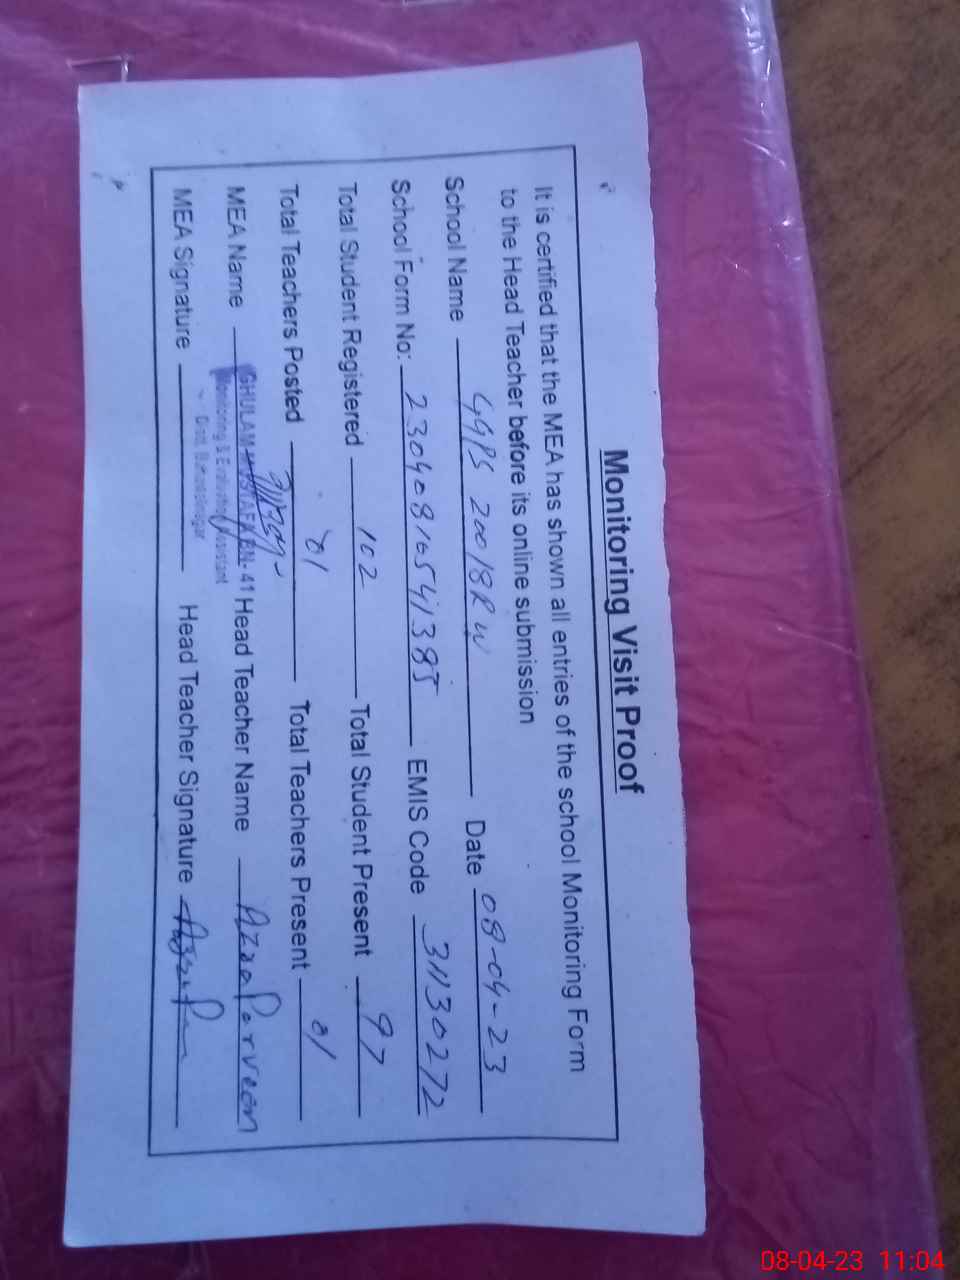 Monitoring Visit Proof
It is certified that the MEA has shown all entries of the school Monitoring Form
to the Head Teacher before its online submission
School Name GGPS 20018RW Date 08-04-23
School Form No: 23040816541385 EMIS Code 31130272
Total Student Registered 102 Total Student Present 97
Total Teachers Posted 01 Total Teachers Present 01
MEA Name GHULAM MUSTAFA BN-41 Head Teacher Name Azra Parveen
Monitoring & Evaluation Assistant
Distt. Bahawalnagar
MEA Signature Head Teacher Signature
08-04-23 11:04